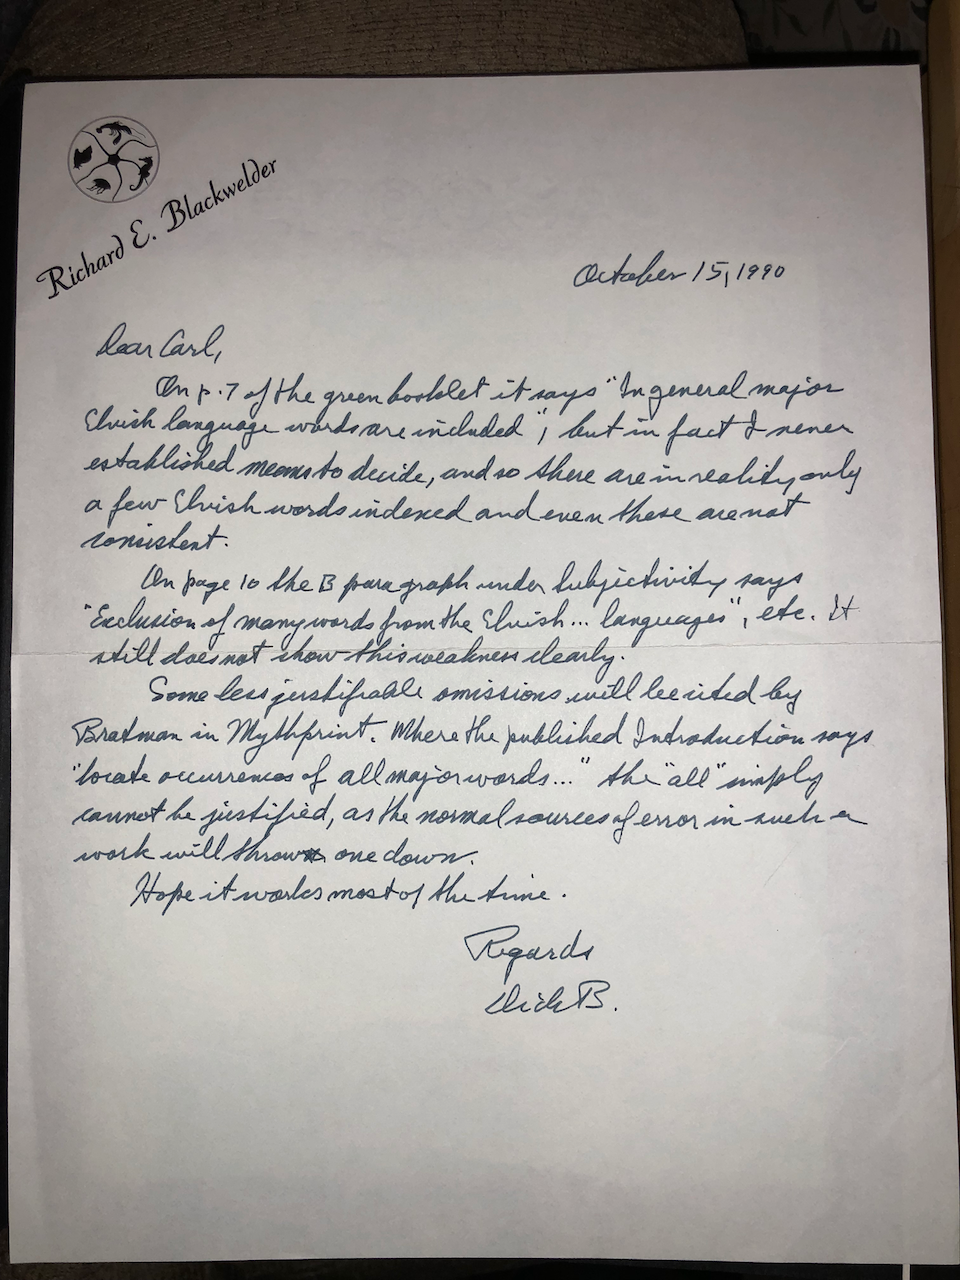 Richard E. Blackwelder
October 15, 1990
Dear Carl,
On p. 7 of the green booklet it says "In general major
Elvish language words are included", but in fact I never
established means to decide, and so there are in reality only
a few Elvish words indexed and even these are not
consistent.
On page 10 the B paragraph under Subjectivity says
"Exclusion of many words from the Elvish... languages", etc. It
still does not show this weakness clearly.
Some less justifiable omissions will be cited by
Bratman in Mythprint. Where the published Introduction says
"locate occurrences of all major words..." the "all" simply
cannot be justified, as the normal sources of error in such a
work will throw one down.
Hope it works most of the time.
Regards
Dick B.